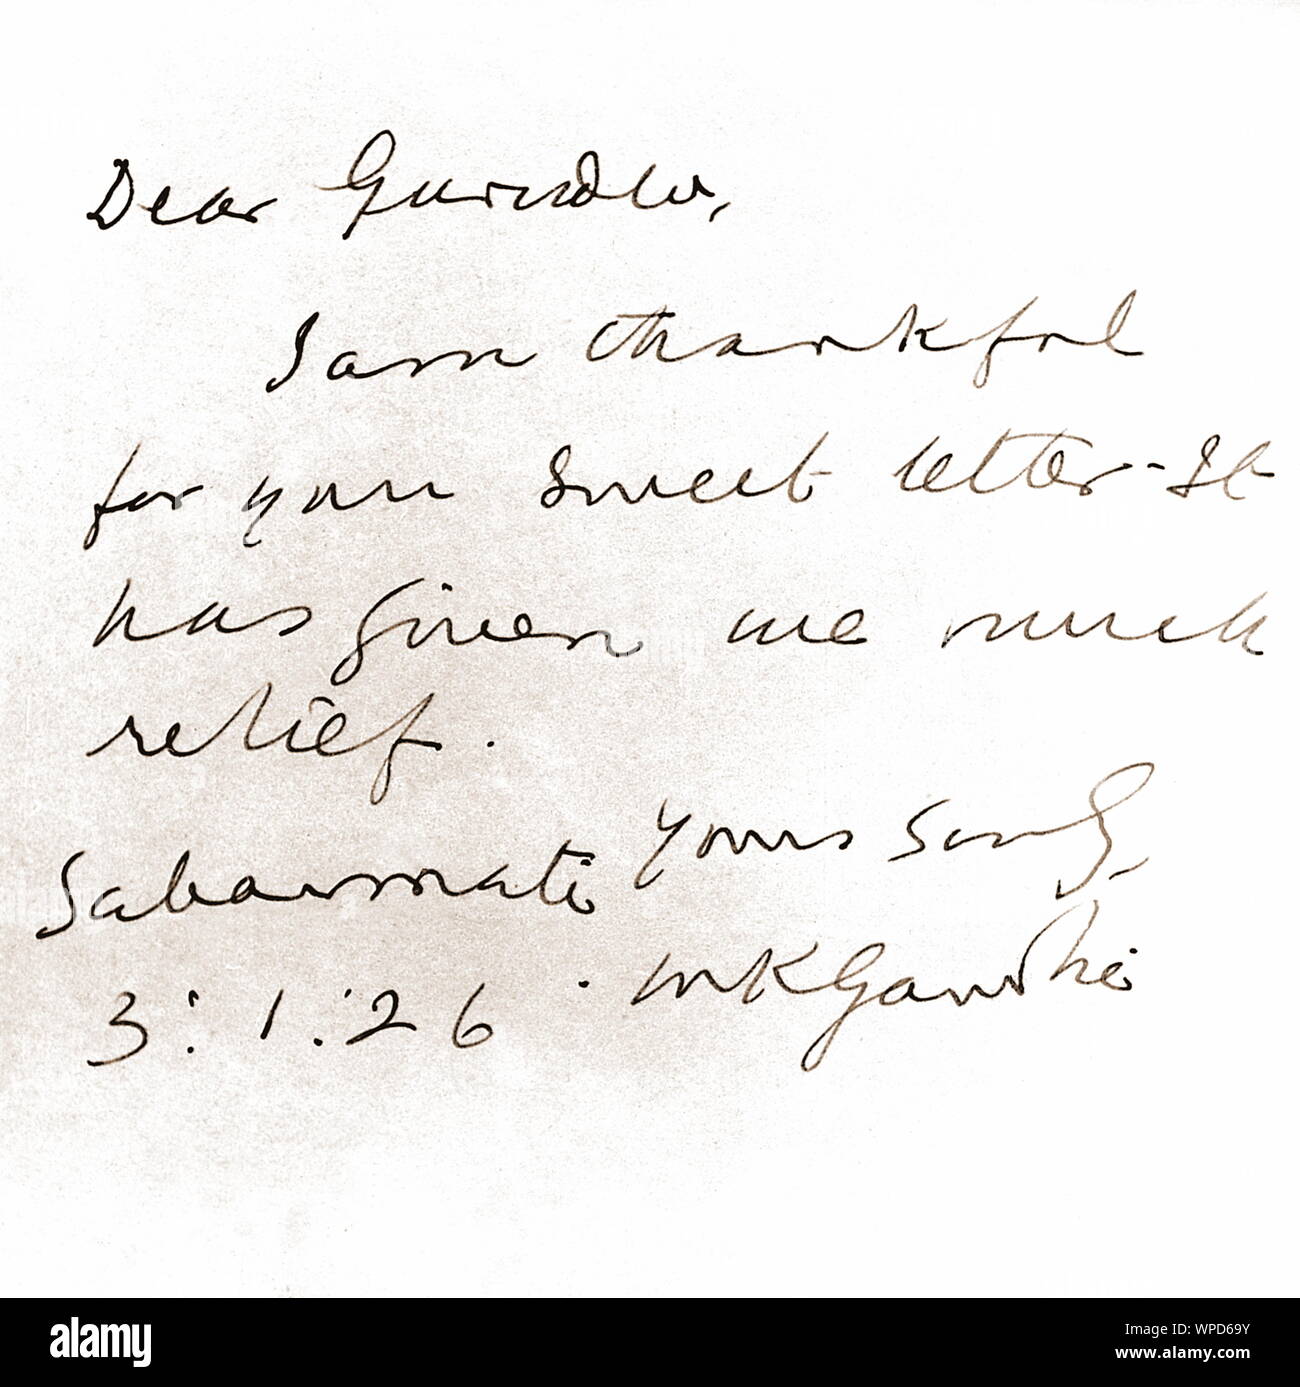 Dear Gurudev,
I am thankful
for your sweet letter. It
has given me much
relief.
Yours sinly,
Sabarmati
MKGandhi
3:1:26
alamy
Image ID: WPD69Y
www.alamy.com